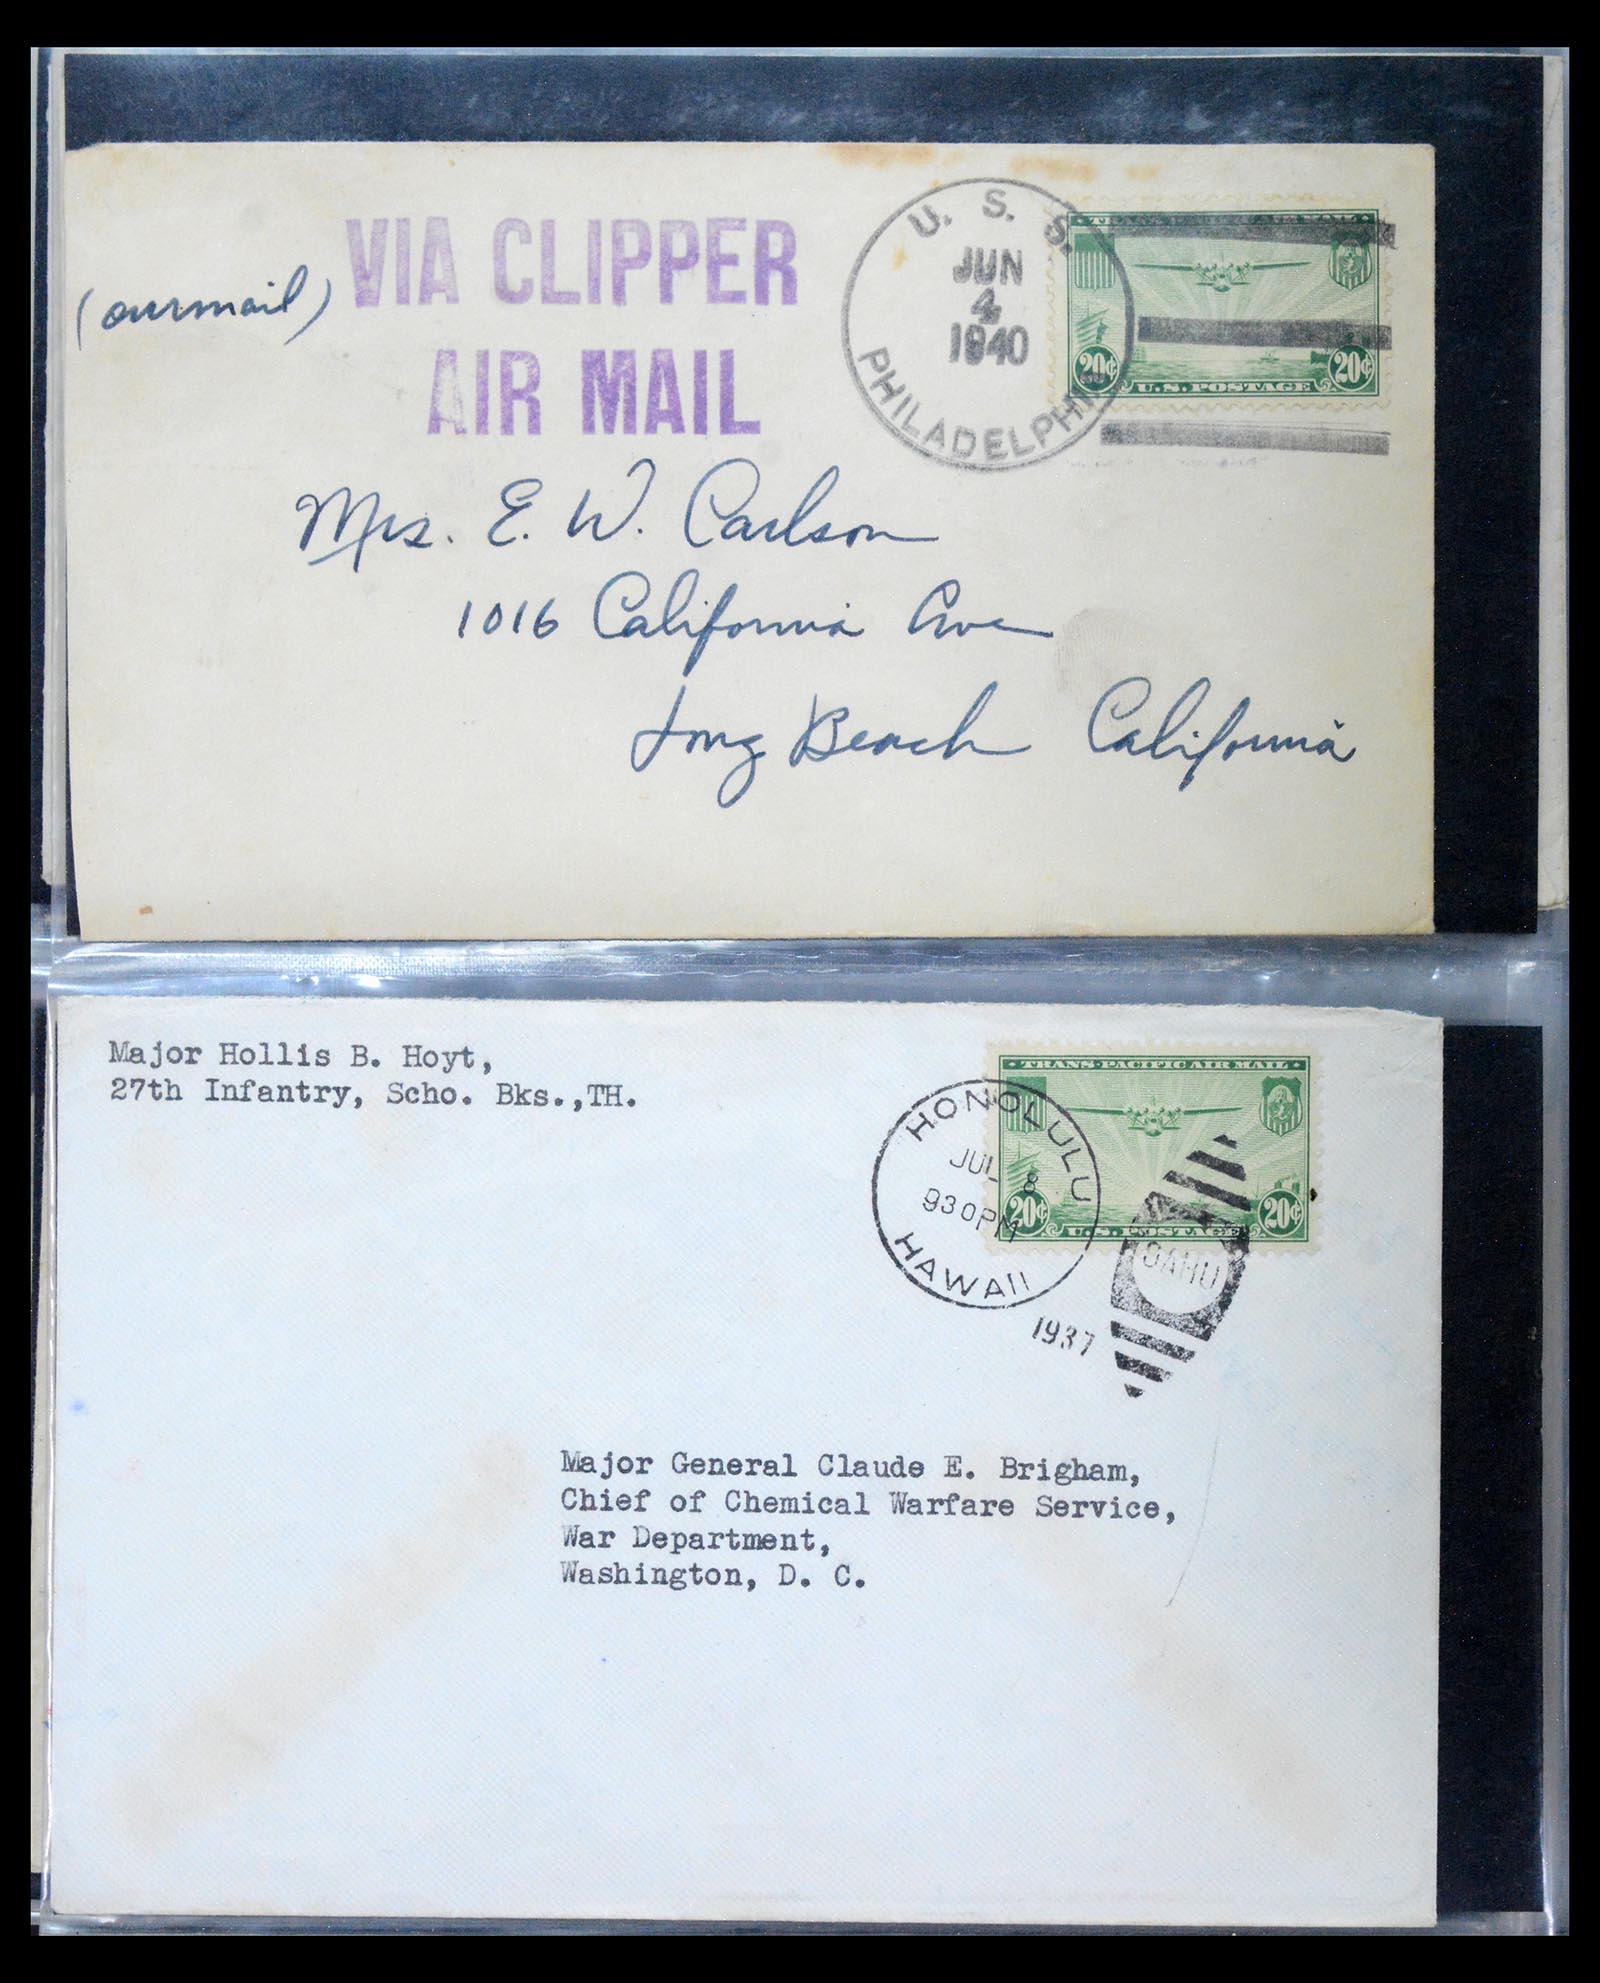 VIA CLIPPER
AIR MAIL
(airmail)
U. S. S.
JUN
4
1940
PHILADELPHIA
20¢ 20¢
U.S. POSTAGE
Mrs. E. W. Carlson
1016 California Ave
Long Beach California
Major Hollis B. Hoyt,
27th Infantry, Scho. Bks.,TH.
TRANS-PACIFIC AIR MAIL
20¢ 20¢
U.S. POSTAGE
HONOLULU
JUL 8
930PM
HAWAII
1937
OAHU
Major General Claude E. Brigham,
Chief of Chemical Warfare Service,
War Department,
Washington, D. C.